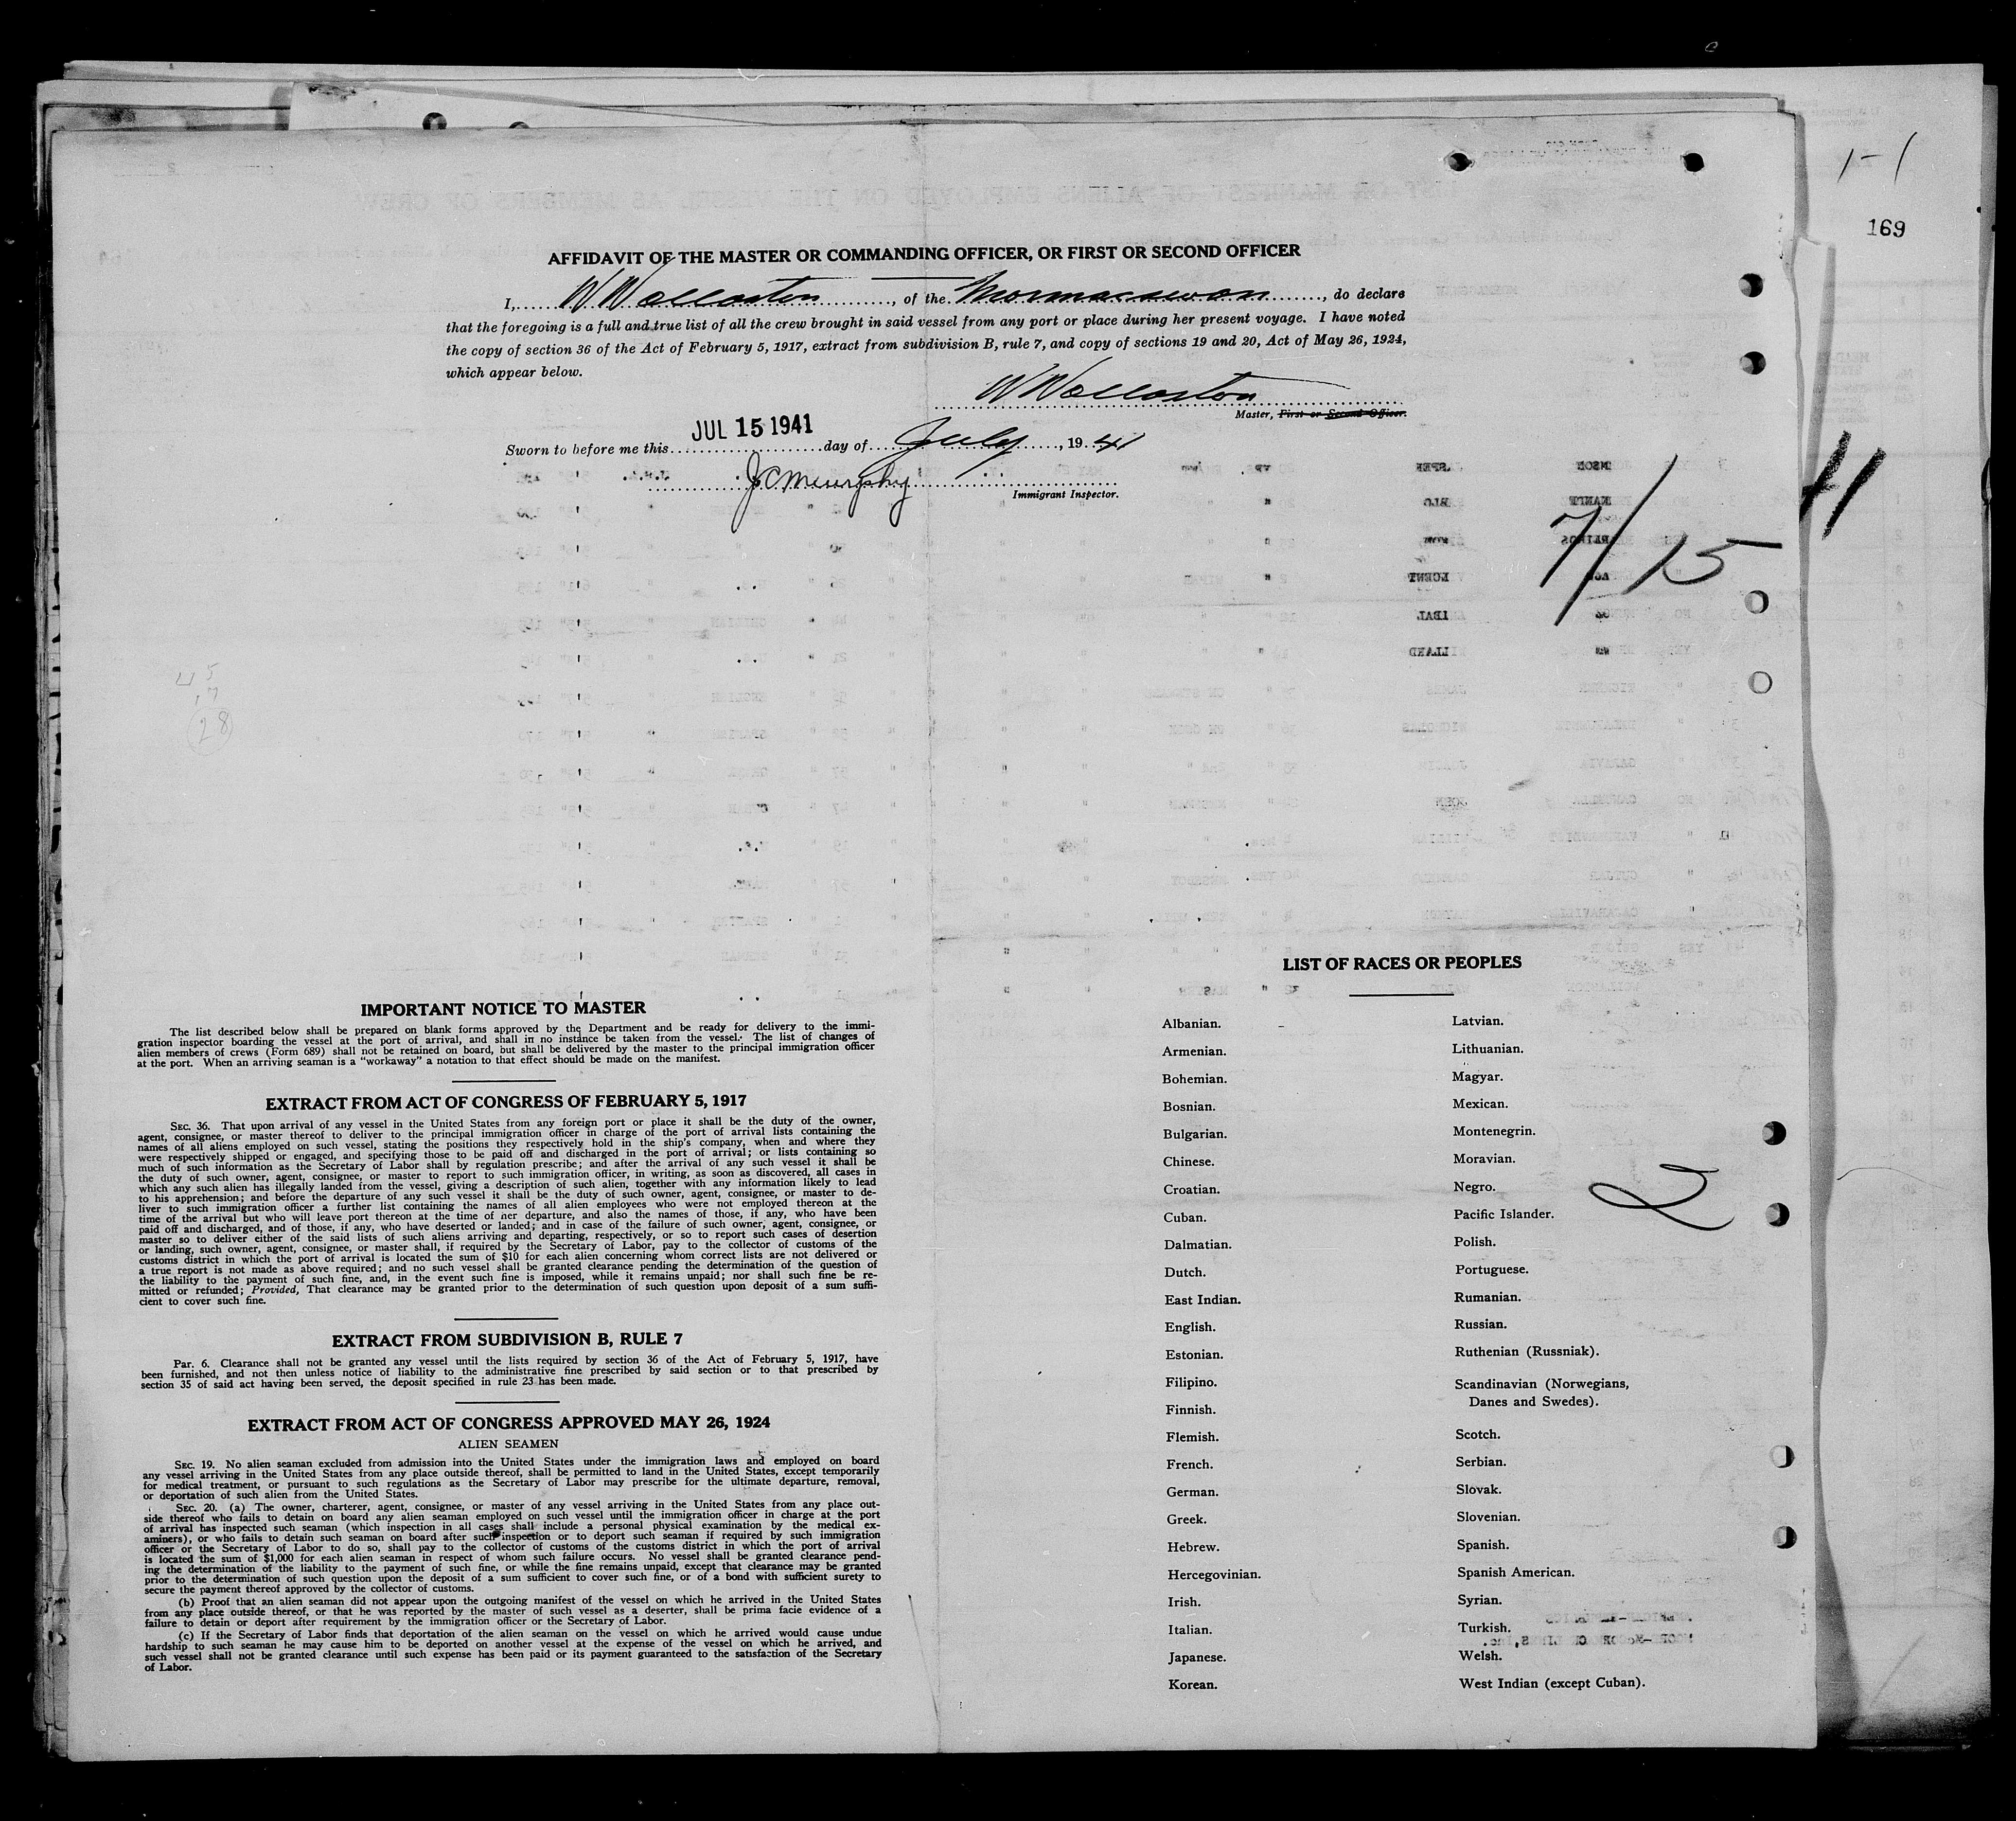 1-1
169
AFFIDAVIT OF THE MASTER OR COMMANDING OFFICER, OR FIRST OR SECOND OFFICER
I, W Wollaston, of the Mormacswan, do declare
that the foregoing is a full and true list of all the crew brought in said vessel from any port or place during her present voyage. I have noted
the copy of section 36 of the Act of February 5, 1917, extract from subdivision B, rule 7, and copy of sections 19 and 20, Act of May 26, 1924,
which appear below.
W Wollaston
Master, First or Second Officer.
JUL 15 1941
Sworn to before me this day of July, 1941
JC Murphy
Immigrant Inspector.
41
7/15
45
17
28
IMPORTANT NOTICE TO MASTER
The list described below shall be prepared on blank forms approved by the Department and be ready for delivery to the immi-
gration inspector boarding the vessel at the port of arrival, and shall in no instance be taken from the vessel. The list of changes of
alien members of crews (Form 689) shall not be retained on board, but shall be delivered by the master to the principal immigration officer
at the port. When an arriving seaman is a "workaway" a notation to that effect should be made on the manifest.
EXTRACT FROM ACT OF CONGRESS OF FEBRUARY 5, 1917
SEC. 36. That upon arrival of any vessel in the United States from any foreign port or place it shall be the duty of the owner,
agent, consignee, or master thereof to deliver to the principal immigration officer in charge of the port of arrival lists containing the
names of all aliens employed on such vessel, stating the positions they respectively hold in the ship's company, when and where they
were respectively shipped or engaged, and specifying those to be paid off and discharged in the port of arrival; or lists containing so
much of such information as the Secretary of Labor shall by regulation prescribe; and after the arrival of any such vessel it shall be
the duty of such owner, agent, consignee, or master to report to such immigration officer, in writing, as soon as discovered, all cases in
which any such alien has illegally landed from the vessel, giving a description of such alien, together with any information likely to lead
to his apprehension; and before the departure of any such vessel it shall be the duty of such owner, agent, consignee, or master to de-
liver to such immigration officer a further list containing the names of all alien employees who were not employed thereon at the
time of the arrival but who will leave port thereon at the time of her departure, and also the names of those, if any, who have been
paid off and discharged, and of those, if any, who have deserted or landed; and in case of the failure of such owner, agent, consignee, or
master so to deliver either of the said lists of such aliens arriving and departing, respectively, or so to report such cases of desertion
or landing, such owner, agent, consignee, or master shall, if required by the Secretary of Labor, pay to the collector of customs of the
customs district in which the port of arrival is located the sum of $10 for each alien concerning whom correct lists are not delivered or
a true report is not made as above required; and no such vessel shall be granted clearance pending the determination of the question of
the liability to the payment of such fine, and, in the event such fine is imposed, while it remains unpaid; nor shall such fine be re-
mitted or refunded; Provided, That clearance may be granted prior to the determination of such question upon deposit of a sum suffi-
cient to cover such fine.
EXTRACT FROM SUBDIVISION B, RULE 7
Par. 6. Clearance shall not be granted any vessel until the lists required by section 36 of the Act of February 5, 1917, have
been furnished, and not then unless notice of liability to the administrative fine prescribed by said section or to that prescribed by
section 35 of said act having been served, the deposit specified in rule 23 has been made.
EXTRACT FROM ACT OF CONGRESS APPROVED MAY 26, 1924
ALIEN SEAMEN
SEC. 19. No alien seaman excluded from admission into the United States under the immigration laws and employed on board
any vessel arriving in the United States from any place outside thereof, shall be permitted to land in the United States, except temporarily
for medical treatment, or pursuant to such regulations as the Secretary of Labor may prescribe for the ultimate departure, removal,
or deportation of such alien from the United States.
SEC. 20. (a) The owner, charterer, agent, consignee, or master of any vessel arriving in the United States from any place out-
side thereof who fails to detain on board any alien seaman employed on such vessel until the immigration officer in charge at the port
of arrival has inspected such seaman (which inspection in all cases shall include a personal physical examination by the medical ex-
aminers), or who fails to detain such seaman on board after such inspection or to deport such seaman if required by such immigration
officer or the Secretary of Labor to do so, shall pay to the collector of customs of the customs district in which the port of arrival
is located the sum of $1,000 for each alien seaman in respect of whom such failure occurs. No vessel shall be granted clearance pend-
ing the determination of the liability to the payment of such fine, or while the fine remains unpaid, except that clearance may be granted
prior to the determination of such question upon the deposit of a sum sufficient to cover such fine, or of a bond with sufficient surety to
secure the payment thereof approved by the collector of customs.
(b) Proof that an alien seaman did not appear upon the outgoing manifest of the vessel on which he arrived in the United States
from any place outside thereof, or that he was reported by the master of such vessel as a deserter, shall be prima facie evidence of a
failure to detain or deport after requirement by the immigration officer or the Secretary of Labor.
(c) If the Secretary of Labor finds that deportation of the alien seaman on the vessel on which he arrived would cause undue
hardship to such seaman he may cause him to be deported on another vessel at the expense of the vessel on which he arrived, and
such vessel shall not be granted clearance until such expense has been paid or its payment guaranteed to the satisfaction of the Secretary
of Labor.
LIST OF RACES OR PEOPLES
Albanian.
Armenian.
Bohemian.
Bosnian.
Bulgarian.
Chinese.
Croatian.
Cuban.
Dalmatian.
Dutch.
East Indian.
English.
Estonian.
Filipino.
Finnish.
Flemish.
French.
German.
Greek.
Hebrew.
Hercegovinian.
Irish.
Italian.
Japanese.
Korean.
Latvian.
Lithuanian.
Magyar.
Mexican.
Montenegrin.
Moravian.
Negro.
Pacific Islander.
Polish.
Portuguese.
Rumanian.
Russian.
Ruthenian (Russniak).
Scandinavian (Norwegians,
Danes and Swedes).
Scotch.
Serbian.
Slovak.
Slovenian.
Spanish.
Spanish American.
Syrian.
Turkish.
Welsh.
West Indian (except Cuban).
2